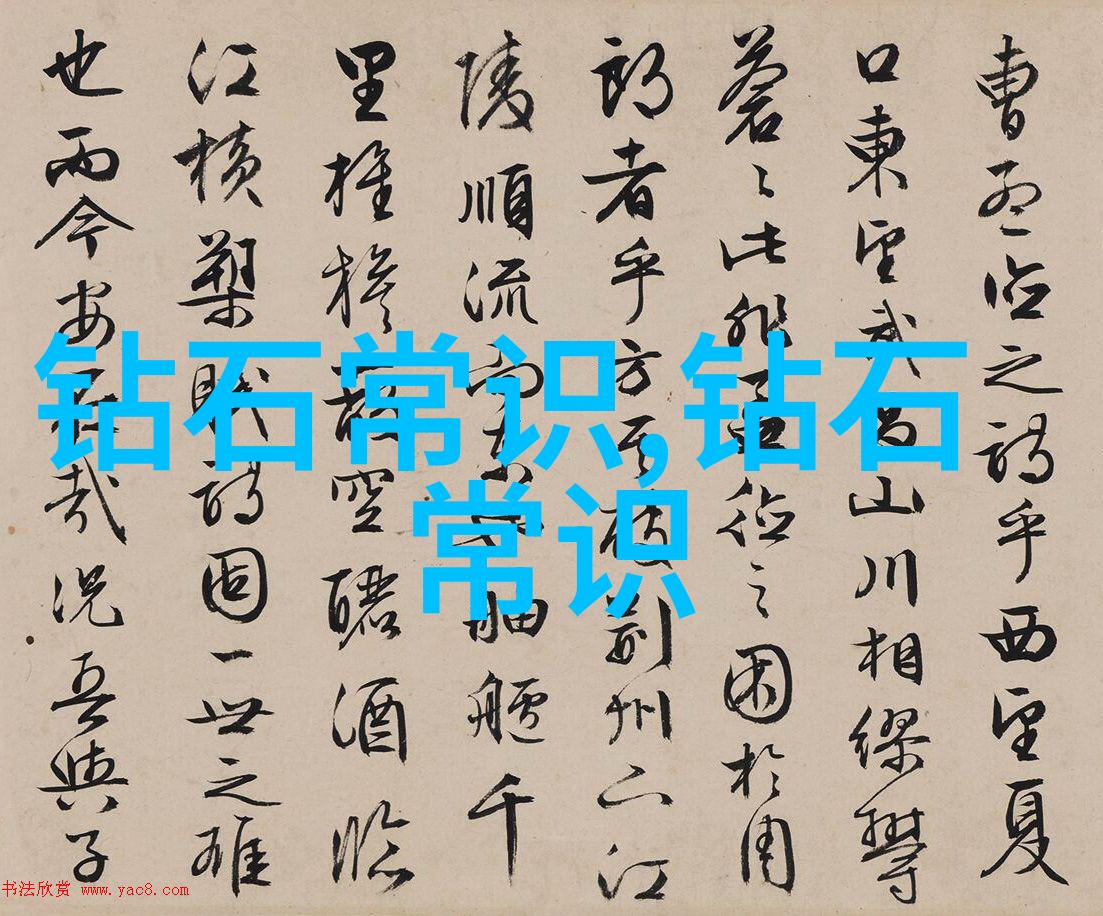 曹孟德之詩乎西望夏
口東望武昌山川相繆鬱
蒼〻此非孟德之困於周
郎者乎方其破荊州下江
陵順流而東也舳艫千
里旌旗蔽空釃酒臨
江橫槊賦詩固一世之雄
也而今安在哉況吾與子
钻石常识,钻石
常识
书法欣赏 www.yac8.com